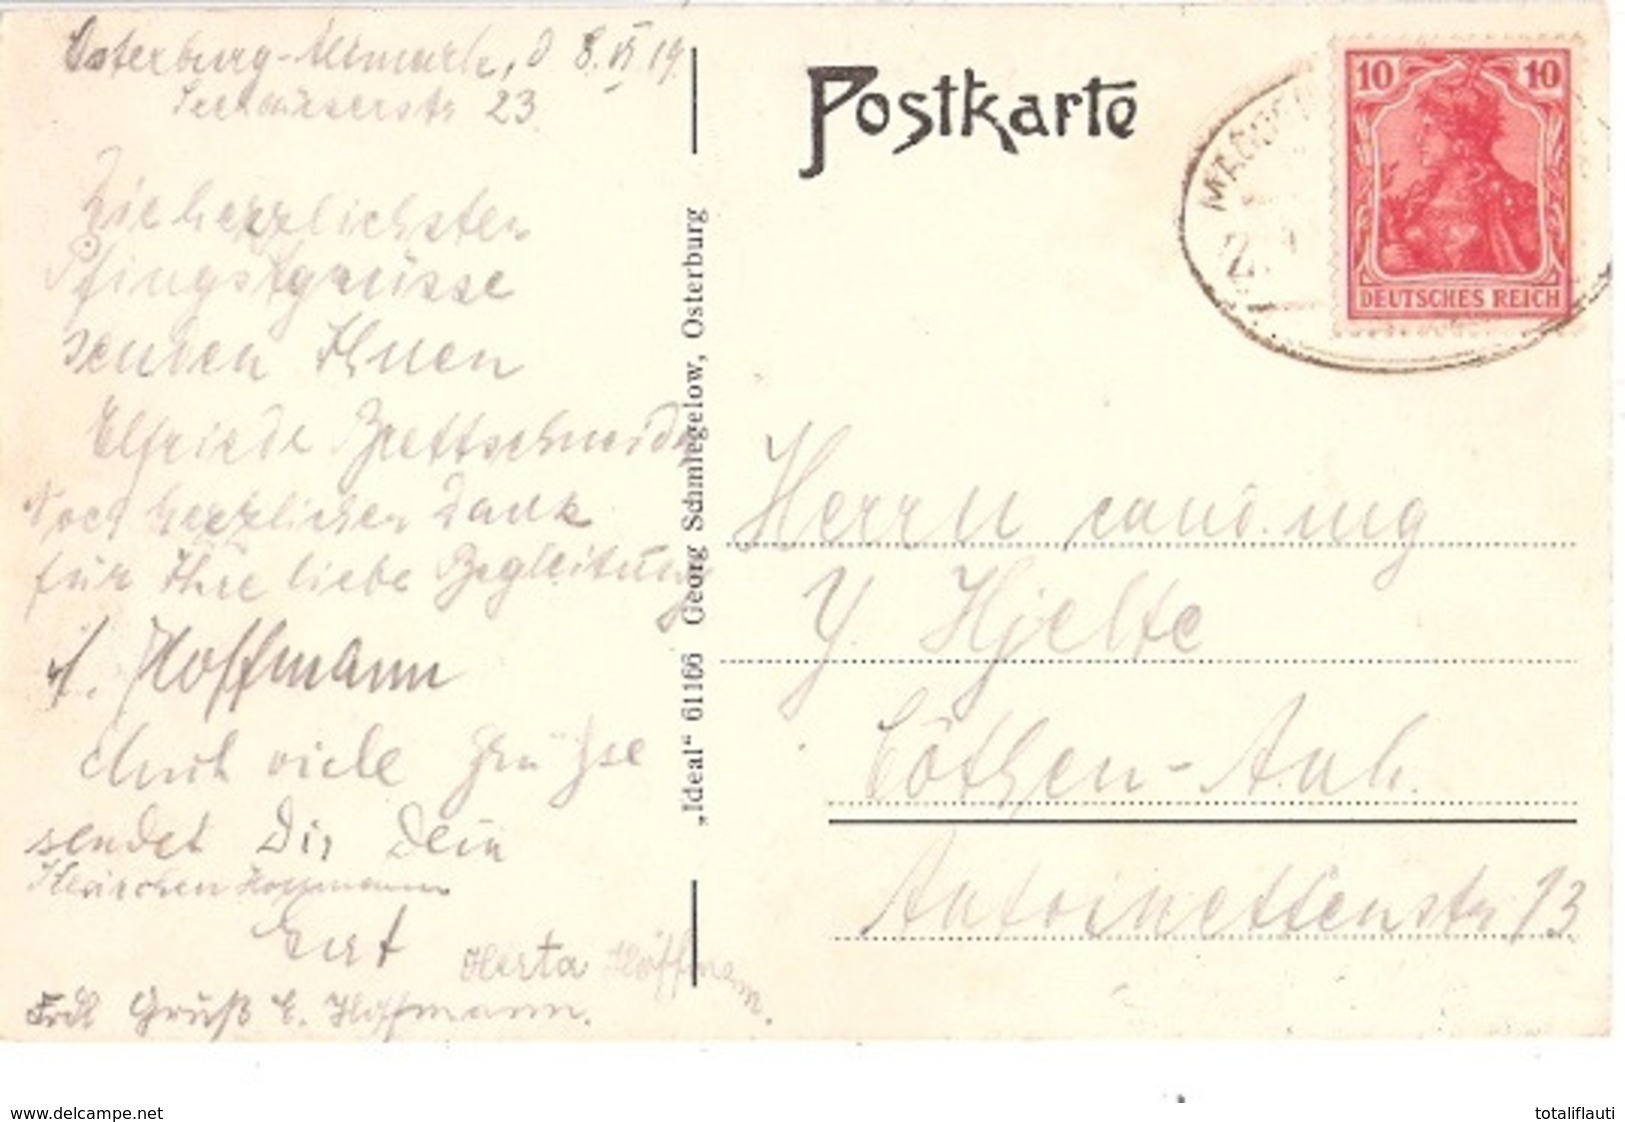 Osterburg-Altmark, d 8. VI 19.
Seehauserstr 23
Die herzlichsten
Pfingstgrüsse
senden Ihnen
Elfriede Brettschneider
Noch herzlichen Dank
für Ihre liebe Begleitung
Hoffmann
Auch viele Grüße
sendet Dir Dein
Klärchen Hoffmann
Kurt
Herta Hoffmann.
Frdl Gruß E. Hoffmann.
„Ideal“ 61166 Georg Schmiegelow, Osterburg
Postkarte
10 10
DEUTSCHES REICH
Herrn cand. ing
Y. Hjelte
Cöthen-Anh.
Antoinettenstr 13
www.delcampe.net
totaliflauti